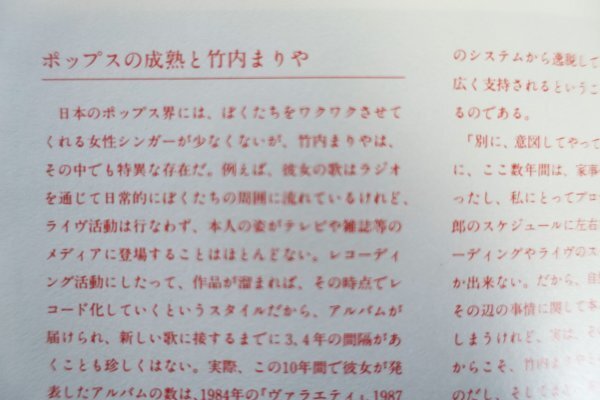 ポップスの成熟と竹内まりや
日本のポップス界には、ぼくたちをワクワクさせて
くれる女性シンガーが少なくないが、竹内まりやは、
その中でも特異な存在だ。例えば、彼女の歌はラジオ
を通じて日常的にぼくたちの周囲に流れているけれど、
ライヴ活動は行なわず、本人の姿がテレビや雑誌等の
メディアに登場することはほとんどない。レコーディ
ング活動にしたって、作品が溜まれば、その時点でレ
コード化していくというスタイルだから、アルバムが
届けられ、新しい歌に接するまでに3、4年の間隔があ
くことも珍しくはない。実際、この10年間で彼女が発
表したアルバムの数は、1984年の『ヴァラエティ』、1987
のシステムから逸脱して
広く支持されるというこ
るのである。
「別に、意図してやって
に、ここ数年間は、家事
ったし、私にとってプロ
郎のスケジュールに左右
ーディングやライヴのス
か出来ない。だから、自
その辺の事情に関して本
しまうけれど、実は、そ
からこそ、竹内まりや
のだし、そして